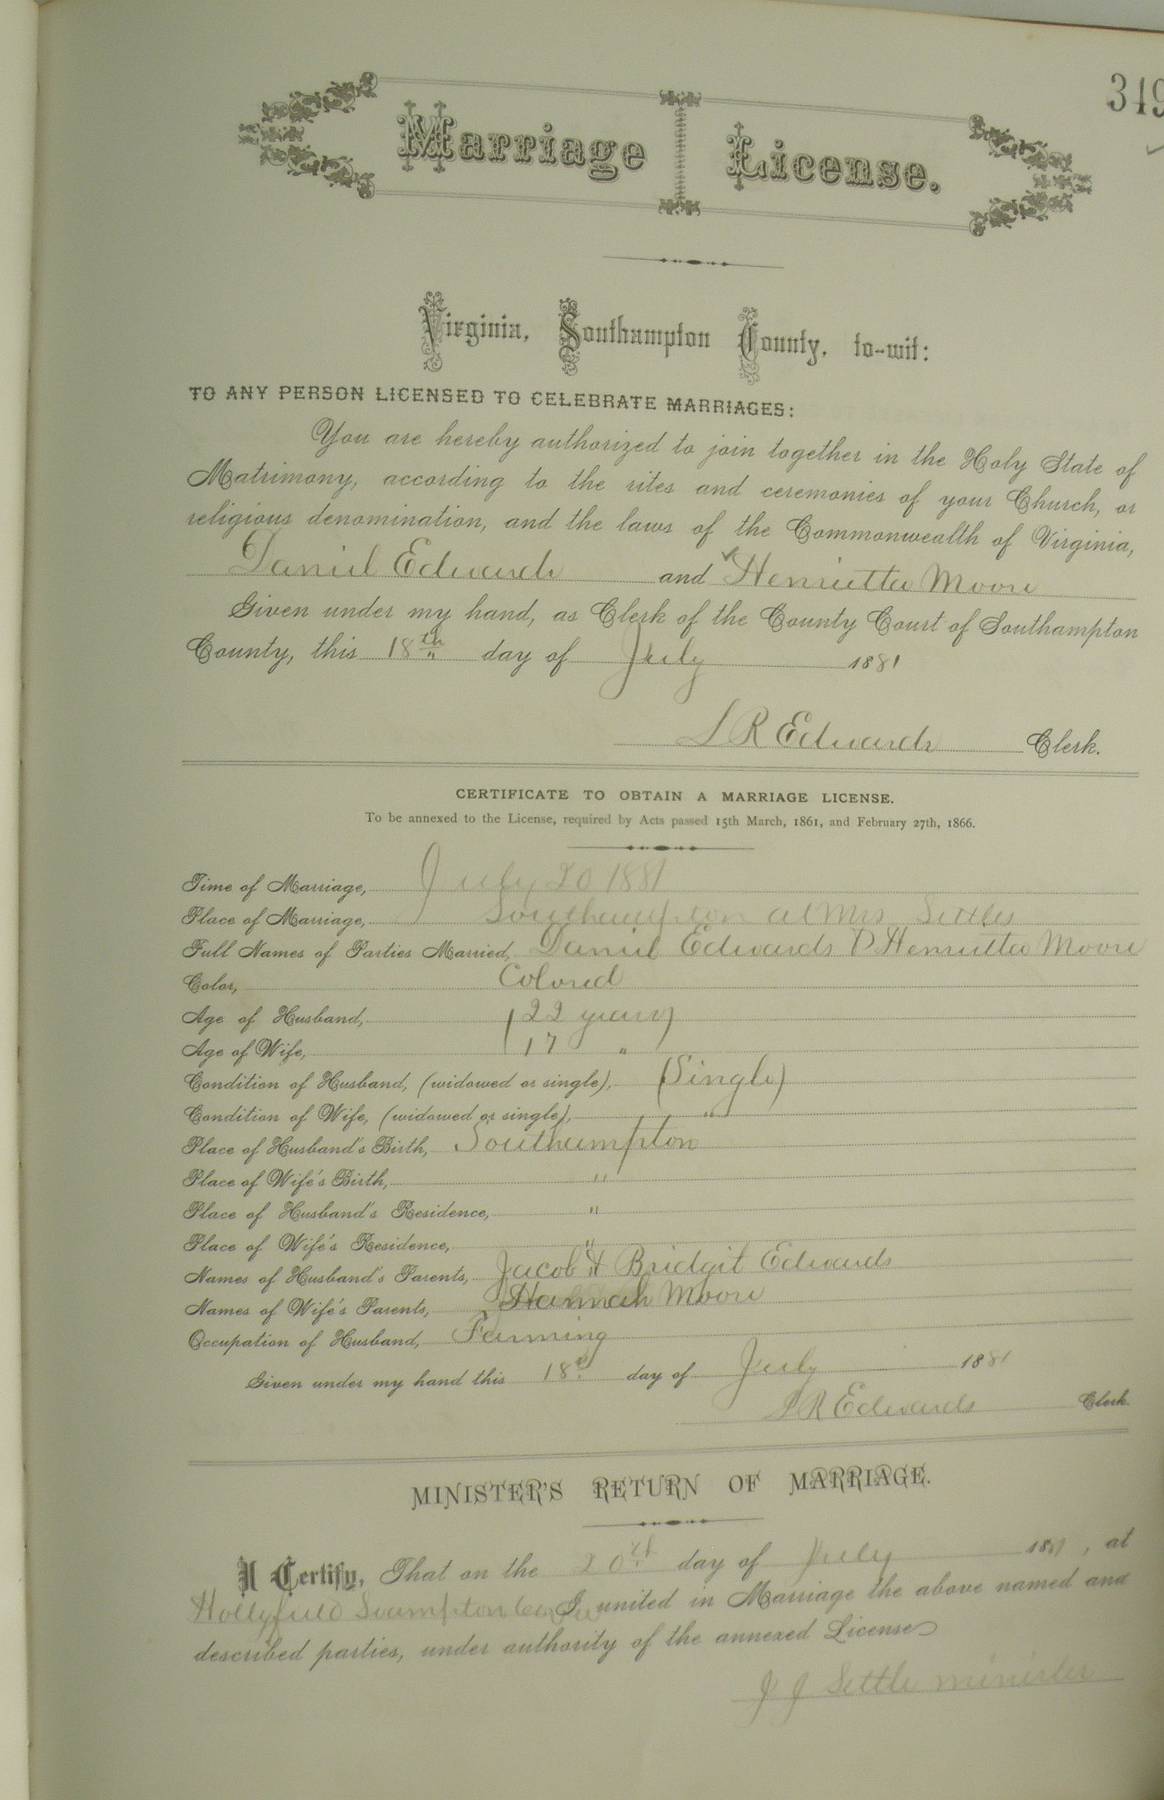 349
Marriage License.
Virginia, Southampton County, to-wit:
TO ANY PERSON LICENSED TO CELEBRATE MARRIAGES:
You are hereby authorized to join together in the Holy State of
Matrimony, according to the rites and ceremonies of your Church, or
religious denomination, and the laws of the Commonwealth of Virginia,
Daniel Edwards and Henrietta Moore
Given under my hand, as Clerk of the County Court of Southampton
County, this 18th day of July 1881
L R Edwards Clerk.
CERTIFICATE TO OBTAIN A MARRIAGE LICENSE.
To be annexed to the License, required by Acts passed 15th March, 1861, and February 27th, 1866.
Time of Marriage, July 20 1881
Place of Marriage, Southampton at Mrs Settles
Full Names of Parties Married, Daniel Edwards & Henrietta Moore
Color, Colored
Age of Husband, 22 years
Age of Wife, 17 "
Condition of Husband, (widowed or single), (Single)
Condition of Wife, (widowed or single), "
Place of Husband's Birth, Southampton
Place of Wife's Birth, "
Place of Husband's Residence, "
Place of Wife's Residence, "
Names of Husband's Parents, Jacob & Bridgit Edwards
Names of Wife's Parents, Hannah Moore
Occupation of Husband, Farming
Given under my hand this 18th day of July 1881
L R Edwards Clerk
MINISTER'S RETURN OF MARRIAGE.
I Certify, That on the 20th day of July 1881, at
Hollyfield I united in Marriage the above named and
described parties, under authority of the annexed License
J J Settle minister